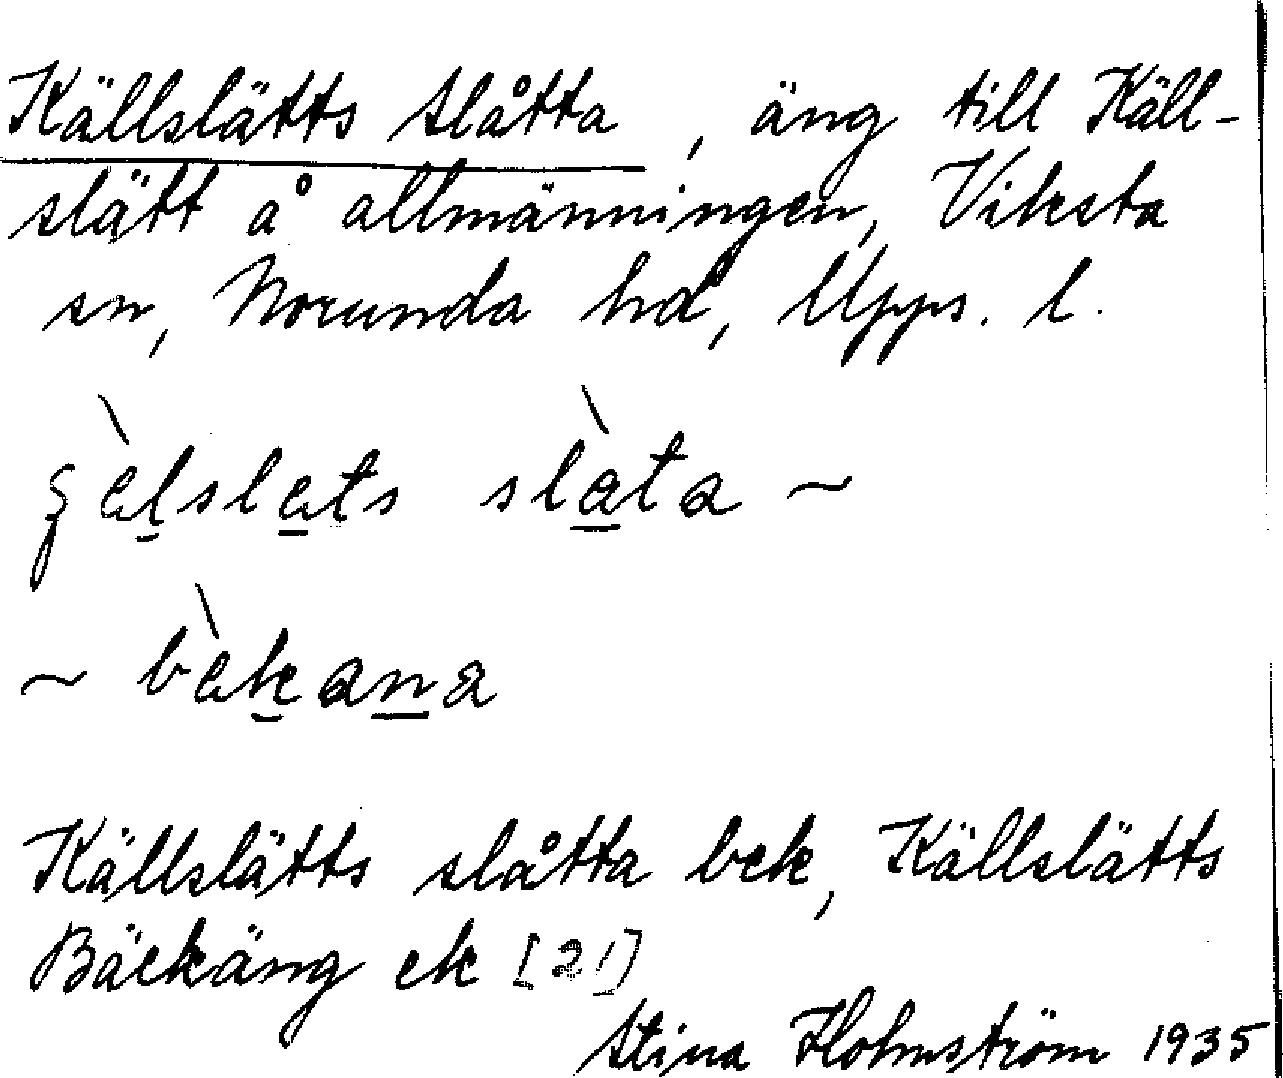 Källslätts slåtta, äng till Käll-
slätt å allmänningen, Viksta
sn, Norunda hd, Upps. l.
slàta ~
~ bèkana
Källslätts slåtta bek, Källslätts
Bäckäng ek [21]
Stina Holmström 1935